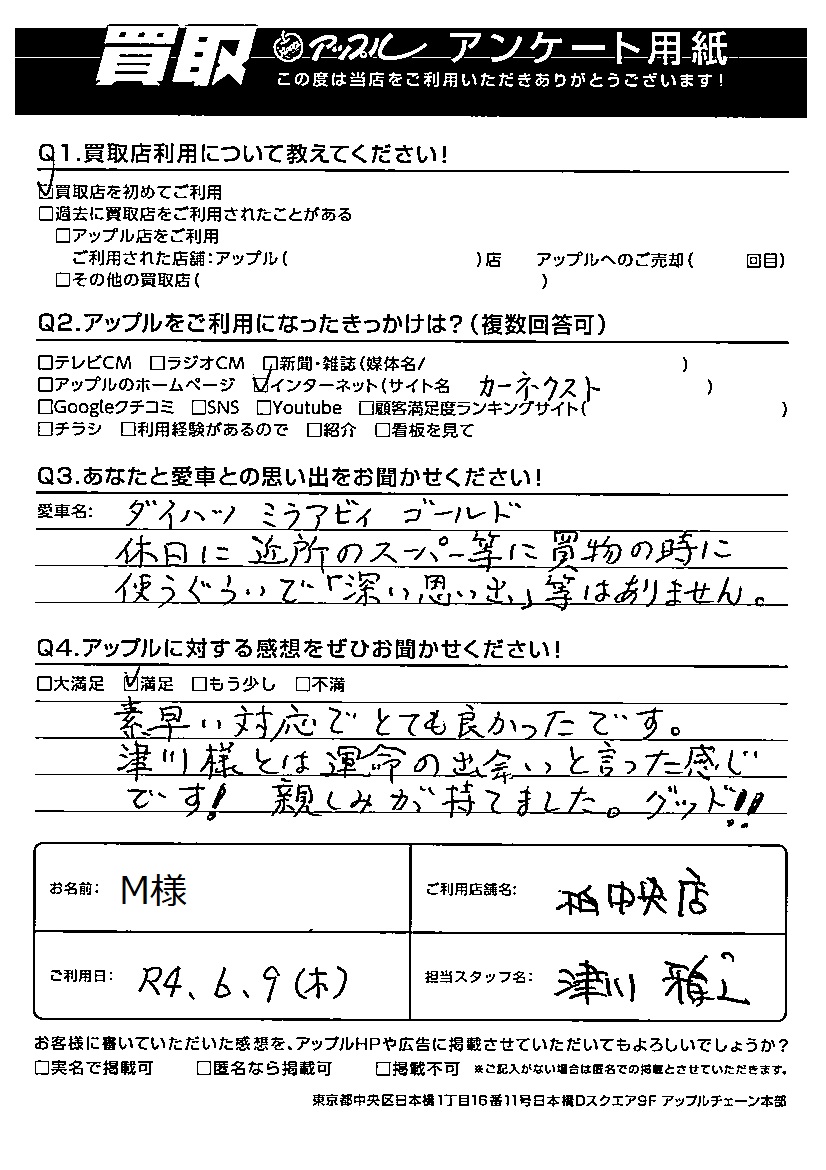 買取 アップル アンケート用紙
この度は当店をご利用いただきありがとうございます!
Q1.買取店利用について教えてください!
☑買取店を初めてご利用
□過去に買取店をご利用されたことがある
□アップル店をご利用
ご利用された店舗:アップル( )店 アップルへのご売却( 回目)
□その他の買取店( )
Q2.アップルをご利用になったきっかけは?(複数回答可)
□テレビCM □ラジオCM □新聞・雑誌(媒体名/ )
□アップルのホームページ ☑インターネット(サイト名 カーネクスト )
□Googleクチコミ □SNS □Youtube □顧客満足度ランキングサイト( )
□チラシ □利用経験があるので □紹介 □看板を見て
Q3.あなたと愛車との思い出をお聞かせください!
愛車名: ダイハツ ミラアヴィ ゴールド
休日に近所のスーパー等に買物の時に
使うぐらいで「深い思い出」等はありません。
Q4.アップルに対する感想をぜひお聞かせください!
□大満足 ☑満足 □もう少し □不満
素早い対応でとても良かったです。
津川様とは運命の出会いっと言った感じ
です! 親しみが持てました。グッド!!
お名前: M様 ご利用店舗名: 柏中央店
ご利用日: R4、6、9(木) 担当スタッフ名: 津川
お客様に書いていただいた感想を、アップルHPや広告に掲載させていただいてもよろしいでしょうか?
□実名で掲載可 □匿名なら掲載可 □掲載不可 ※ご記入がない場合は匿名での掲載とさせていただきます。
東京都中央区日本橋1丁目16番11号日本橋Dスクエア9F アップルチェーン本部